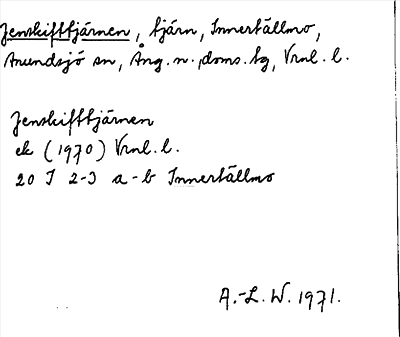 Jenskifttjärnen, tjärn, Innertällmo,
Anundsjö sn, Ång. n. doms. tg, Vrnl. l.
Jenskifttjärnen
ek (1970) Vrnl. l.
20 I 2-3 a-b Innertällmo
A.-L. W. 1971.